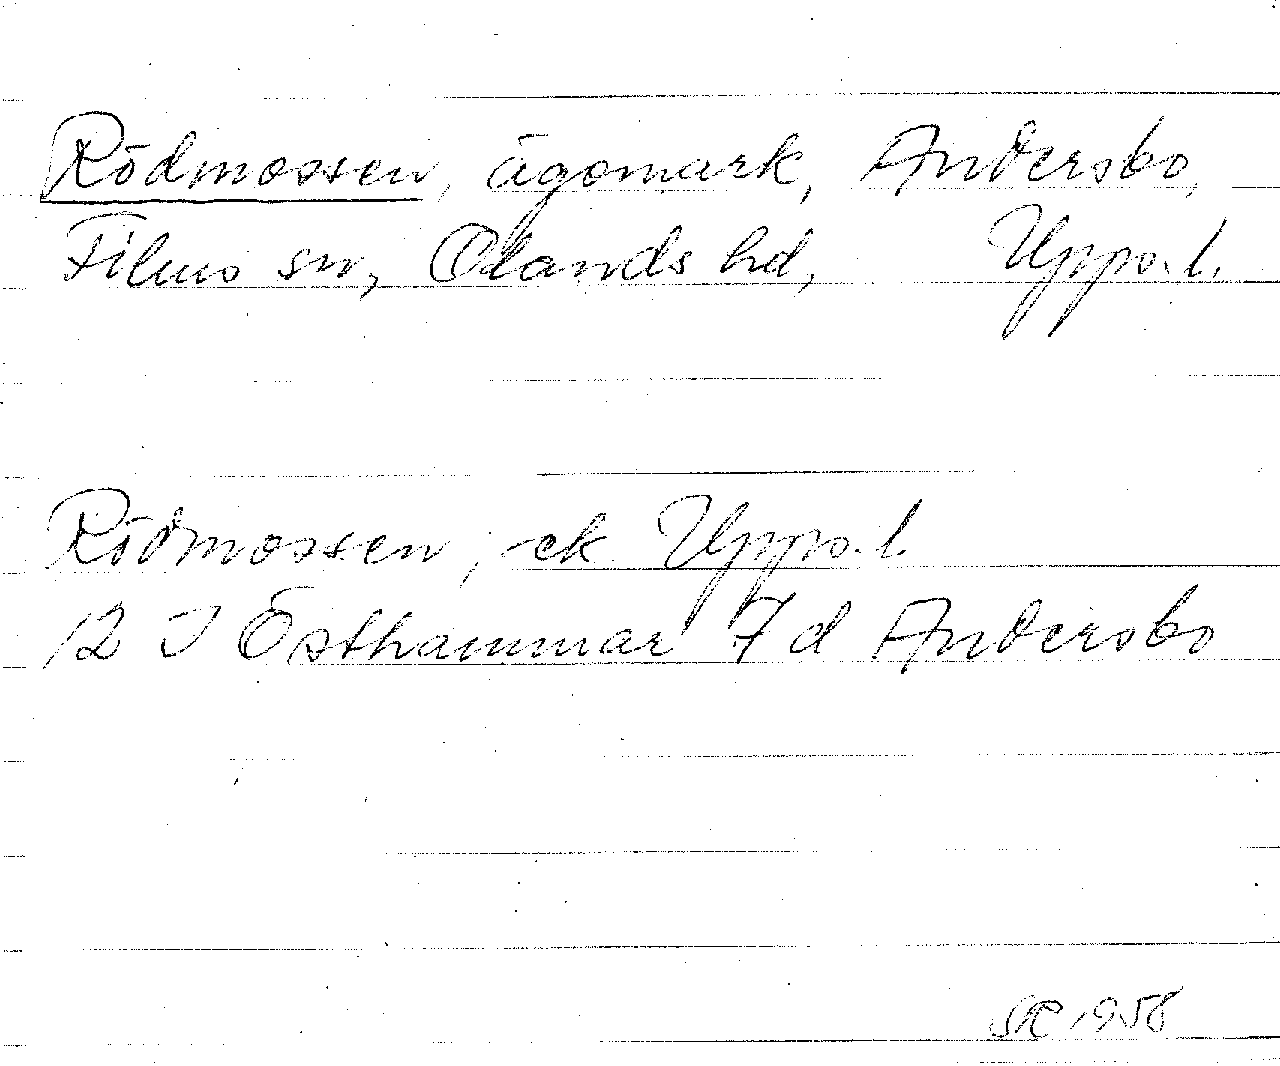 Rödmossen, ägomark, Andersbo,
Films sn, Olands hd, Upps. l.
Rödmossen, ek Upps. l.
12 I Östhammar 7 d Andersbo
1958